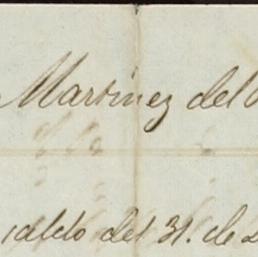 Martinez del
saldo del 31. de